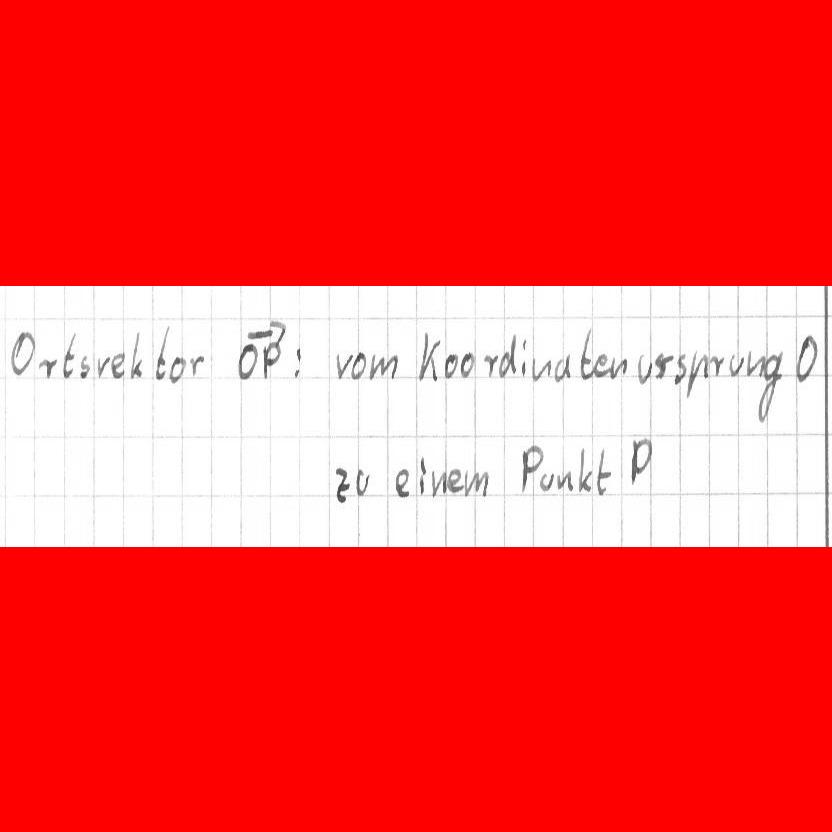 Ortsvektor \overrightarrow{OP}: vom Koordinatenursprung O
zu einem Punkt P